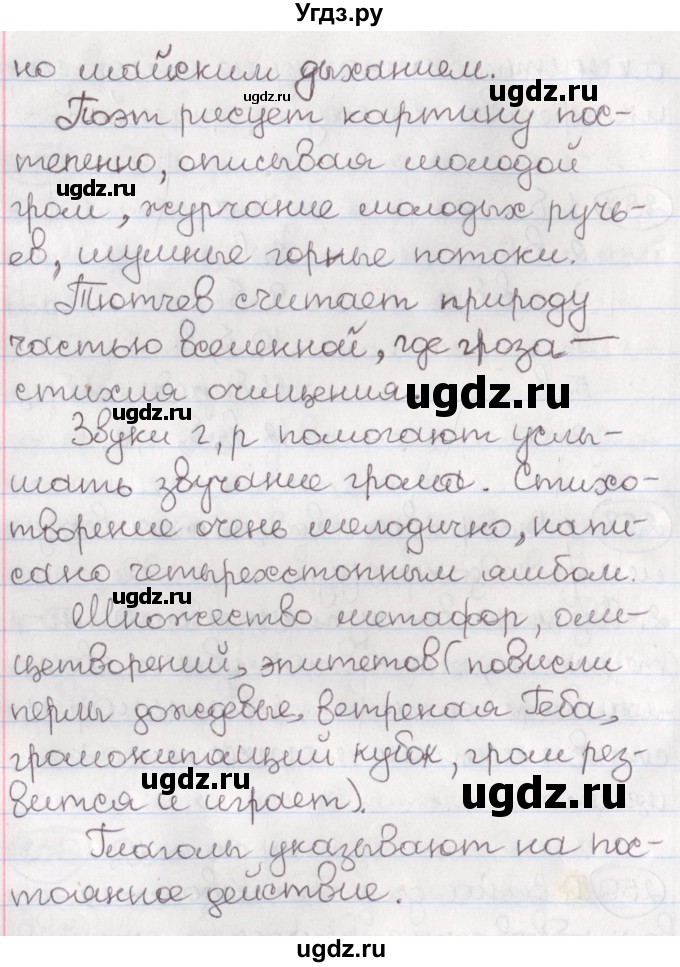 Угдз.ру
но майским дыханием.
ugdz.ru
ugdz.ru
Поэт рисует картину пос-
тепенно, описывая молодой
ugdz.ru
гром, журчание молодых ручь-
ев, шумные горные потоки.
Тютчев считает природу
частью вселенной, где гроза —
стихия очищения.
ugdz.ru
ugdz.ru
Звуки г, р помогают услы-
шать звучание грома. Стихо-
творение очень мелодично, напи-
сано четырехстопным ямбом.
ugdz.ru
Множество метафор, оли-
цетворений, эпитетов (повисли
перлы дождевые, ветреная Геба,
громокипящий кубок, гром рез-
вится и играет).
ugdz.ru
ugdz.ru
Глаголы указывают на пос-
тоянное действие.
ugdz.ru
ugdz.ru